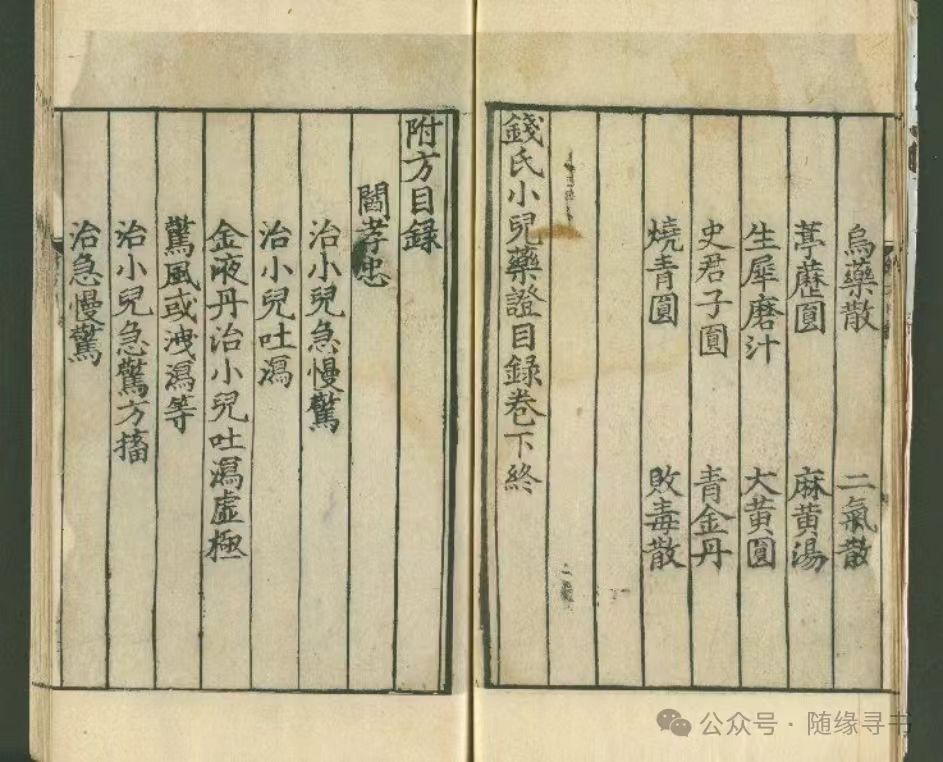 烏藥散 二氣散
葶藶圓 麻黃湯
生犀磨汁 大黃圓
史君子圓 青金丹
燒青圓 敗毒散
錢氏小兒藥證目録卷下終
附方目録
閻孝忠
治小兒急慢驚
治小兒吐瀉
金液丹治小兒吐瀉虛極
驚風或洩瀉等
治小兒急驚方搐
治急慢驚
公众号·随缘寻书